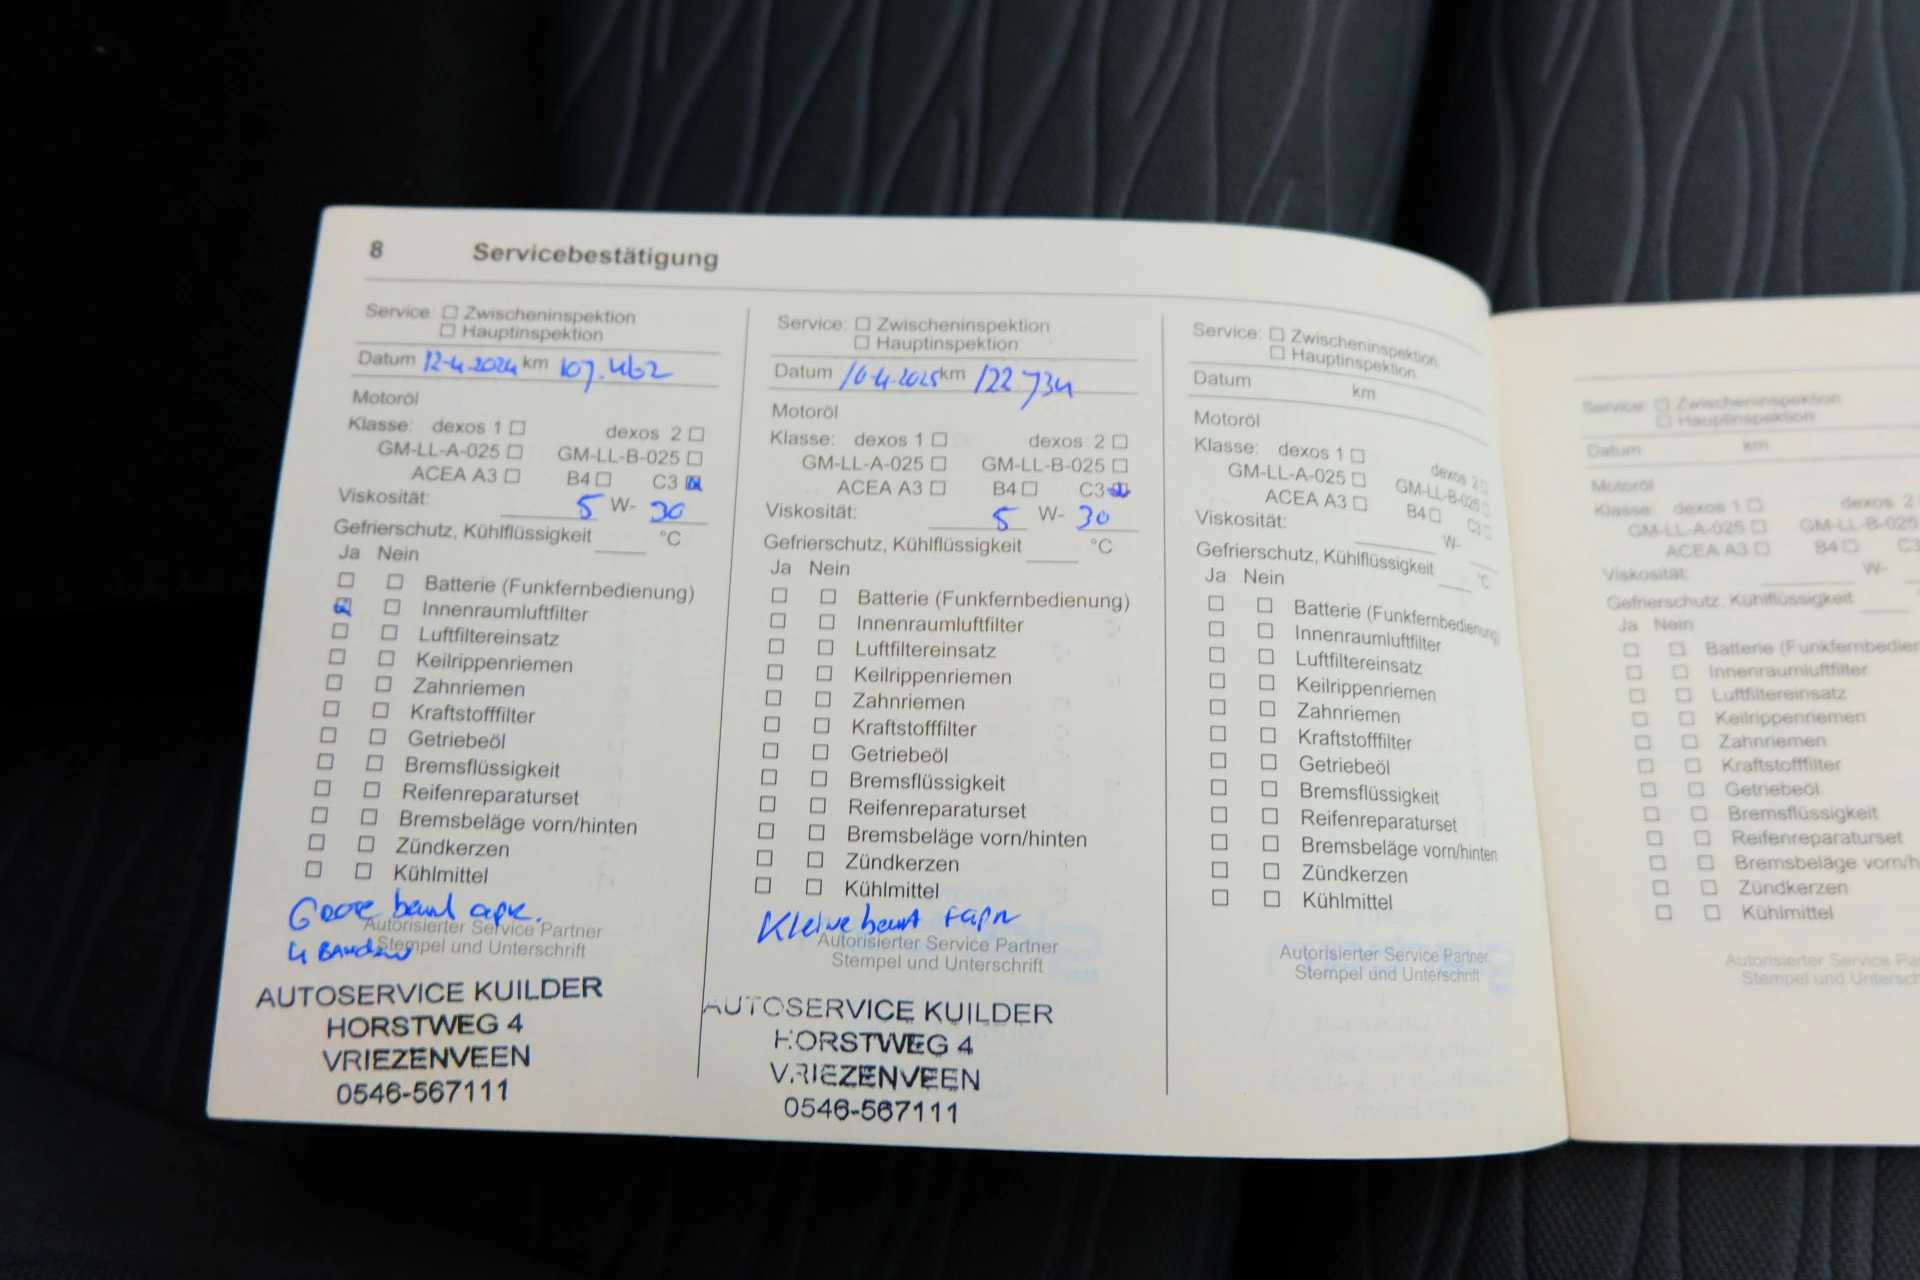 8 Servicebestätigung
Service: Zwischeninspektion
Hauptinspektion
Datum 12-4-2024 km 107.462
Motoröl
Klasse: dexos 1 dexos 2
GM-LL-A-025 GM-LL-B-025
ACEA A3 B4 C3
Viskosität: 5 W- 30
Gefrierschutz, Kühlflüssigkeit °C
Ja Nein
Batterie (Funkfernbedienung)
Innenraumluftfilter
Luftfiltereinsatz
Keilrippenriemen
Zahnriemen
Kraftstofffilter
Getriebeöl
Bremsflüssigkeit
Reifenreparaturset
Bremsbeläge vorn/hinten
Zündkerzen
Kühlmittel
beurt apk.
Autorisierter Service Partner
4 Banden
Stempel und Unterschrift
AUTOSERVICE KUILDER
HORSTWEG 4
VRIEZENVEEN
0546-567111
Service: Zwischeninspektion
Hauptinspektion
Datum 10-4-2025 km 122734
Motoröl
Klasse: dexos 1 dexos 2
GM-LL-A-025 GM-LL-B-025
ACEA A3 B4 C3
Viskosität: 5 W- 30
Gefrierschutz, Kühlflüssigkeit °C
Ja Nein
Batterie (Funkfernbedienung)
Innenraumluftfilter
Luftfiltereinsatz
Keilrippenriemen
Zahnriemen
Kraftstofffilter
Getriebeöl
Bremsflüssigkeit
Reifenreparaturset
Bremsbeläge vorn/hinten
Zündkerzen
Kühlmittel
Kleine beurt
Autorisierter Service Partner
Stempel und Unterschrift
AUTOSERVICE KUILDER
HORSTWEG 4
VRIEZENVEEN
0546-567111
Service: Zwischeninspektion
Hauptinspektion
Datum km
Motoröl
Klasse: dexos 1 dexos 2
GM-LL-A-025 GM-LL-B-025
ACEA A3 B4 C3
Viskosität: W-
Gefrierschutz, Kühlflüssigkeit °C
Ja Nein
Batterie (Funkfernbedienung)
Innenraumluftfilter
Luftfiltereinsatz
Keilrippenriemen
Zahnriemen
Kraftstofffilter
Getriebeöl
Bremsflüssigkeit
Reifenreparaturset
Bremsbeläge vorn/hinten
Zündkerzen
Kühlmittel
Autorisierter Service Partner
Stempel und Unterschrift
Service: Zwischeninspektion
Hauptinspektion
Datum km
Motoröl
Klasse: dexos 1 dexos 2
GM-LL-A-025 GM-LL-B-025
ACEA A3 B4 C3
Viskosität: W-
Gefrierschutz, Kühlflüssigkeit
Ja Nein
Batterie (Funkfernbedien
Innenraumluftfilter
Luftfiltereinsatz
Keilrippenriemen
Zahnriemen
Kraftstofffilter
Getriebeöl
Bremsflüssigkeit
Reifenreparaturset
Bremsbeläge vorn/h
Zündkerzen
Kühlmittel
Autorisierter Service Pa
Stempel und Untersch